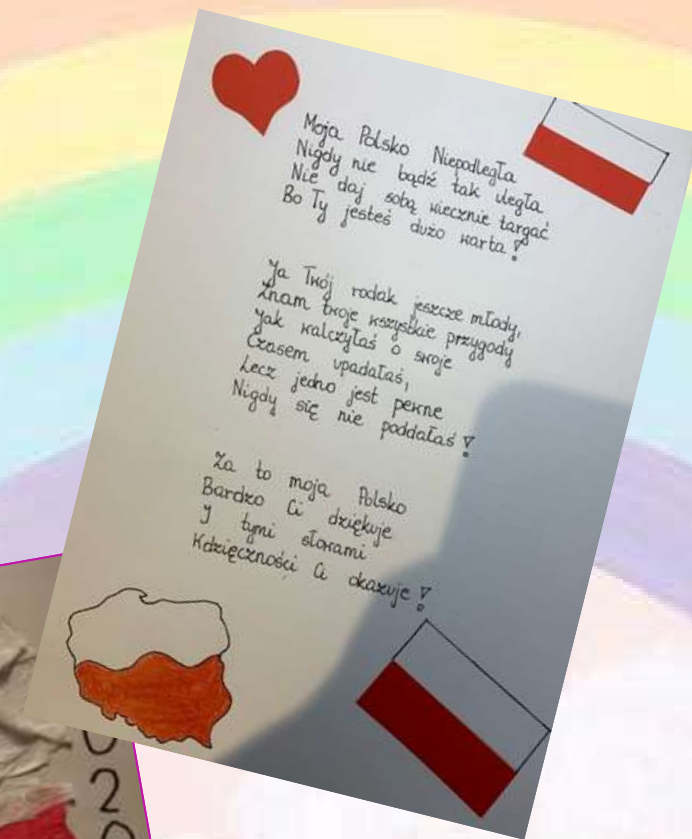 Moja Polsko Niepodległa
Nigdy nie bądź tak uległa
Nie daj sobą wiecznie targać
Bo Ty jesteś dużo warta!
Ja Twój rodak jeszcze młody,
Znam twoje wszystkie przygody
Jak walczyłaś o swoje
Czasem upadałaś,
Lecz jedno jest pewne
Nigdy się nie poddałaś!
Za to moja Polsko
Bardzo Ci dziękuje
J tymi słowami
Wdzięczności Ci okazuje!
2